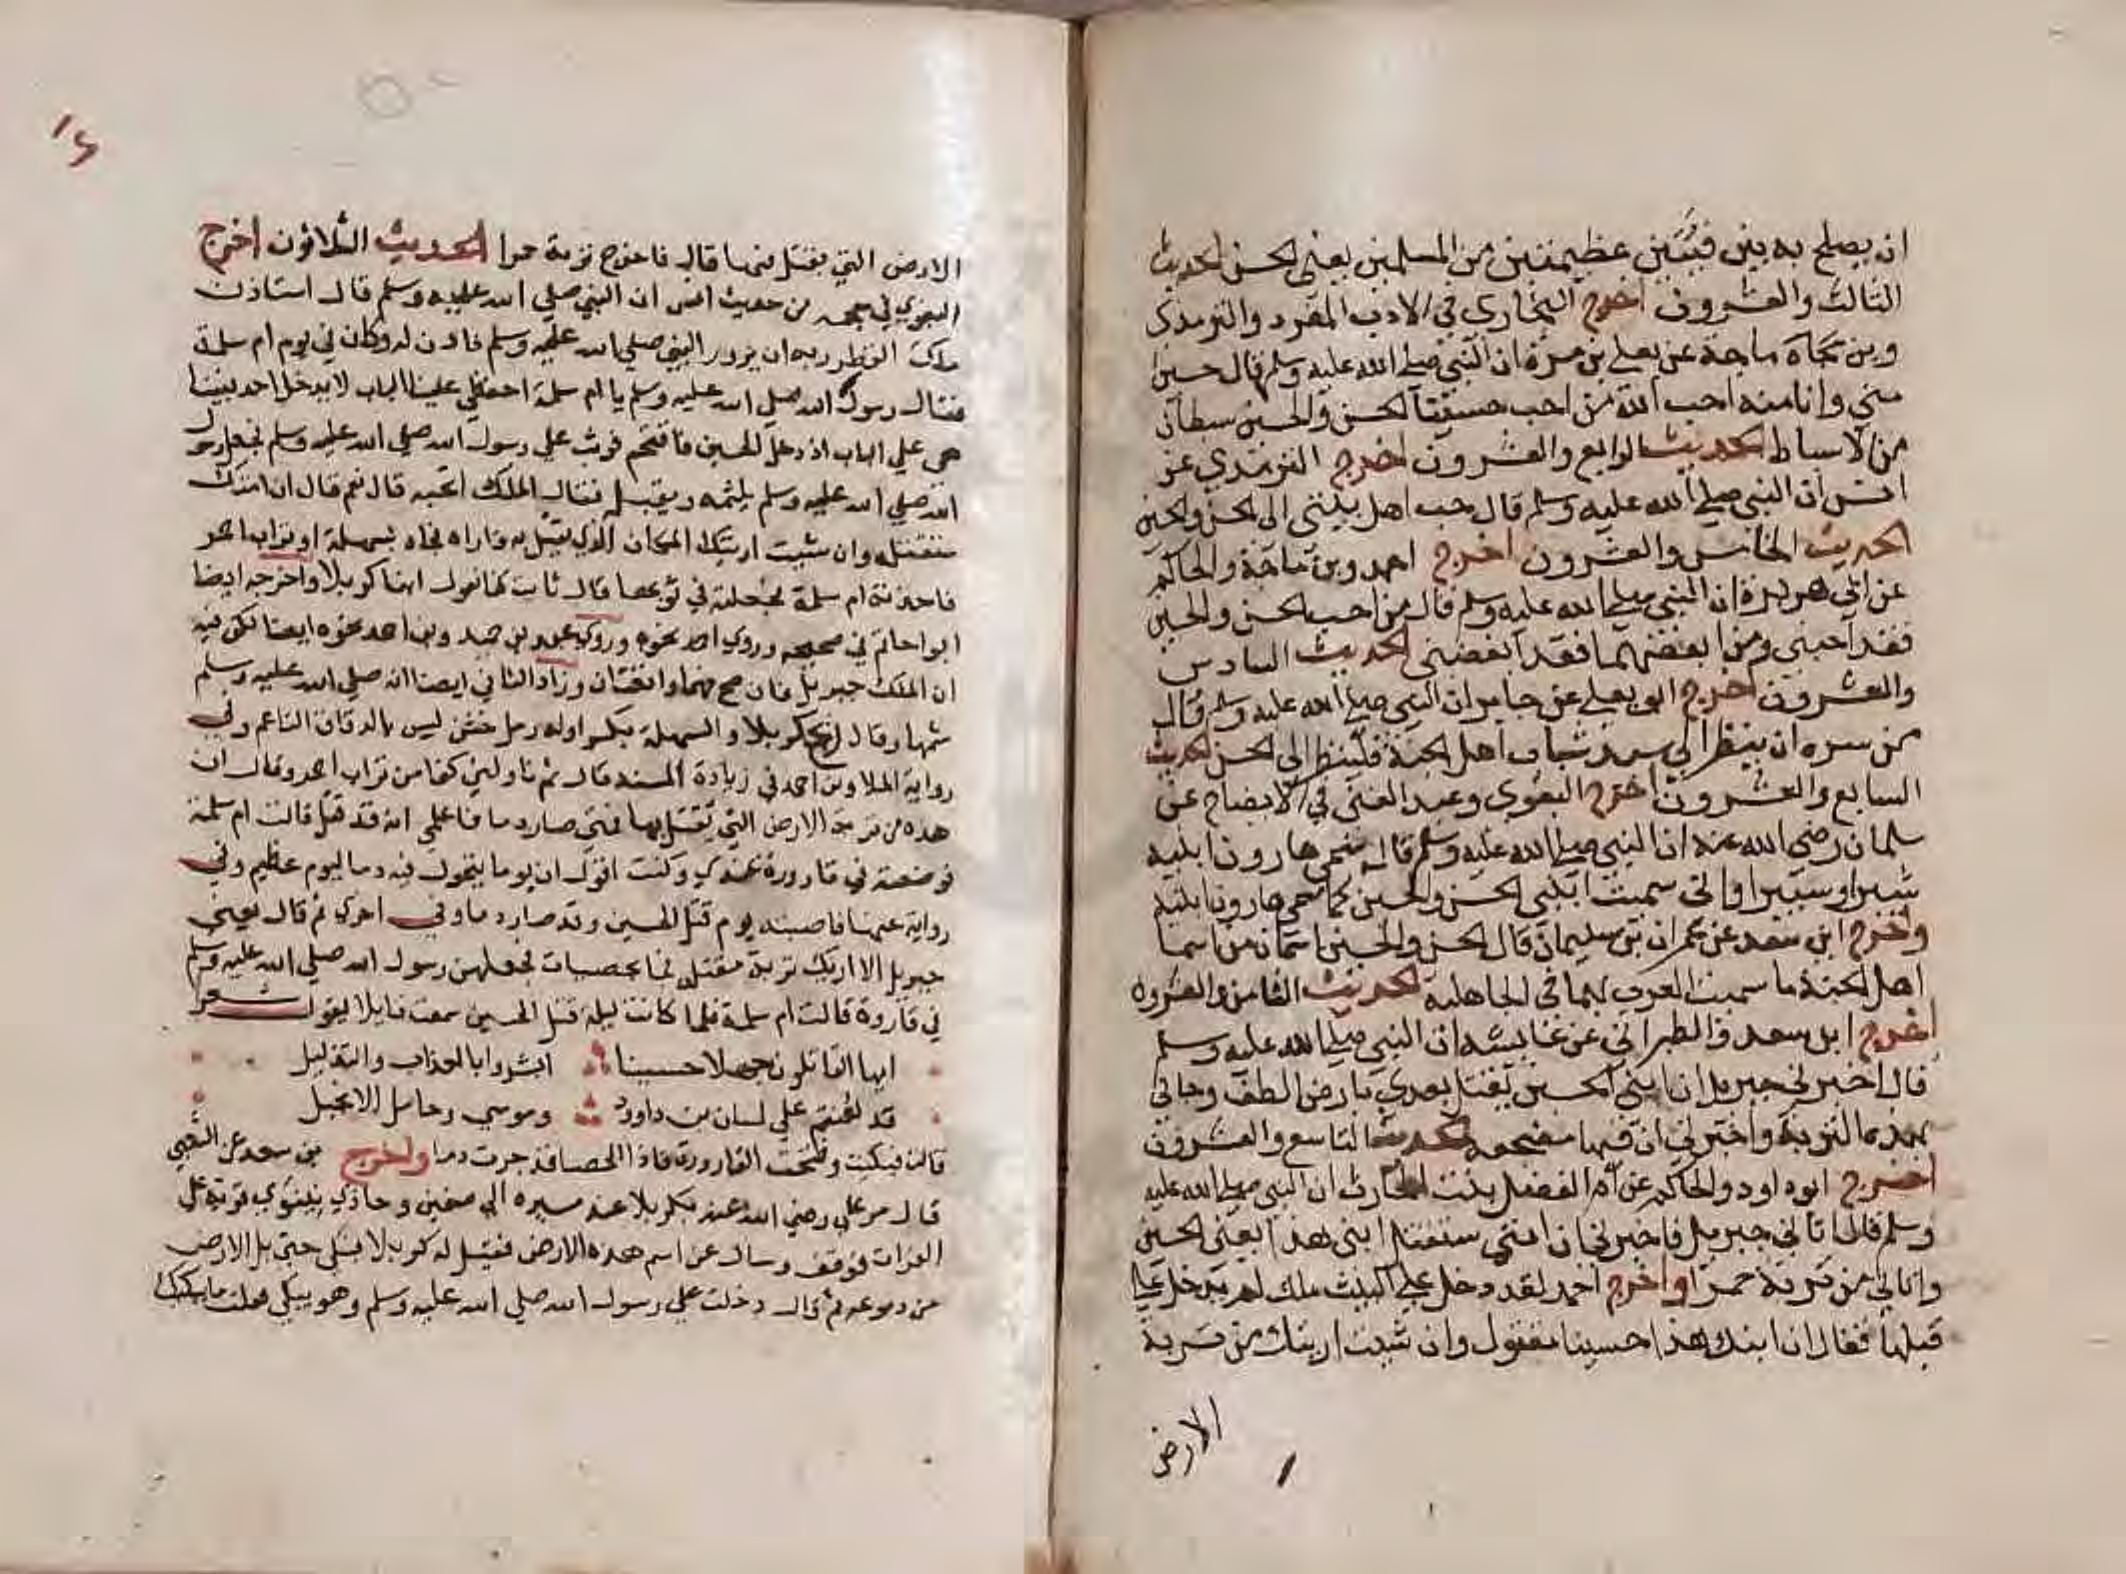 ان يصلح به بين فيئتين عظيمتين من المسلمين يعني الحسن الحديث
الثالث والعشرون اخرج البخاري في الادب المفرد والترمذي
وبن ماجة عن يعلى بن مرة ان النبي صلى الله عليه وسلم قال حسين
مني وانا منه احب الله من احب حسينا الحسن والحسين سبطان
من الاسباط الحديث الرابع والعشرون اخرج الترمذي عن
انس ان النبي صلى الله عليه وسلم قال احب اهل بيتي الى الحسن والحسين
الحديث الخامس والعشرون اخرج احمد وبن ماجة والحاكم
عن ابي هريرة ان النبي صلى الله عليه وسلم قال من احب الحسن والحسين
فقد احبني ومن ابغضهما فقد ابغضني الحديث السادس
والعشرون اخرج ابو يعلى عن جابر ان النبي صلى الله عليه وسلم قال
من سره ان ينظر الى سيد شباب اهل الجنة فلينظر الى الحسن الحديث
السابع والعشرون اخرج البغوي وعبد الغني في الايضاح عن
سلمان رضي الله عنه ان النبي صلى الله عليه وسلم قال سمى هارون ابنيه
شبرا وشبيرا واني سميت ابني الحسن والحسين كما سمى هارون ابنيه
واخرج ابن سعد عن عمران بن سليمان قال الحسن والحسين اسمان من اسما
اهل الجنة ما سميت العرب بهما في الجاهلية الحديث الثامن والعشرون
اخرج ابن سعد والطبراني عن عايشه ان النبي صلى الله عليه وسلم
قال اخبرني جبريل ان ابني الحسين يقتل بعدي بارض الطف وجاني
بهذه التربة واخبرني ان فيها مضجعه الحديث التاسع والعشرون
اخرج ابوداود والحاكم عن ام الفضل بنت الحارث ان النبي صلى الله عليه
وسلم قال اتاني جبريل فاخبرني ان امتي ستقتل ابني هذا يعني الحسين
واتاني من تربة حمرا واخرج احمد لقد دخل علي البيت ملك لم يدخل علي
قبلها فقال ان ابنك هذا حسينا مقتول وان شيت اريتك من تربة
الارض
الارض التي يقتل فيها قال فاخرج تربة حمرا الحديث الثلاثون اخرج
البغوي في معجمه من حديث انس ان النبي صلى الله عليه وسلم قال استاذن
ملك القطر ربه ان يزور النبي صلى الله عليه وسلم فاذن له وكان في يوم ام سلمة
فقال رسول الله صلى الله عليه وسلم يا ام سلمة احفظي علينا الباب لا يدخل احد بينا
هي على الباب اذ دخل الحسين فاقتحم فوثب على رسول الله صلى الله عليه وسلم فجعل رسول
الله صلى الله عليه وسلم يلثمه ويقبله فقال الملك اتحبه قال نعم قال ان امتك
ستقتله وان شيت اريتك المكان الذي يقتل به فاراه فجاه بسهلة او تراب احمر
فاخذته ام سلمة فجعلته في ثوبها قال ثابت كنا نقول انها كربلا واخرجه ايضا
ابو حاتم في صحيحه وروى احمد نحوه وروى عبد بن حميد وبن احمد نحوه ايضا لكن فيه
ان الملك جبريل فان صح فهما واقعتان وزاد الثاني ايضا انه صلى الله عليه وسلم
شمها وقال ريح كربلا والسهلة بكسر اوله رمل خشن ليس بالدقاق الناعم وفي
رواية الملا وبن احمد في زيادة المسند قال ثم ناولني كفا من تراب احمر وقال ان
هذه من تربة الارض التي يقتل بها فمتى صار دما فاعلمي انه قد قتل قالت ام سلمة
فوضعته في قارورة عندي وكنت اقول ان يوما يتحول فيه دما ليوم عظيم وفي
رواية عنها فاصبته يوم قتل الحسين وقد صار دما وفي اخرى ثم قال يعني
جبريل الا اريك تربة مقتله فجا بحصيات فجعلهن رسول الله صلى الله عليه وسلم
في قاروة قالت ام سلمة فلما كانت ليلة قتل الحسين سمعت قايلا يقول شعرا
ايها القاتلون جهلا حسينا ابشروا بالعذاب والتذليل
قد لعنتم على لسان بن داوود وموسى وحامل الانجيل
قالت فبكيت وفتحت القارورة فاذا الحصا قد جرت دما واخرج بن سعد عن الشعبي
قال مر علي رضي الله عنه بكربلا عند مسيره الى صفين وحاذى نينوى قرية على
الفرات فوقف وسال عن اسم هذه الارض فقيل له كربلا فبكى حتى بل الارض
من دموعه ثم قال دخلت على رسول الله صلى الله عليه وسلم وهو يبكي فقلت ما يبكيك